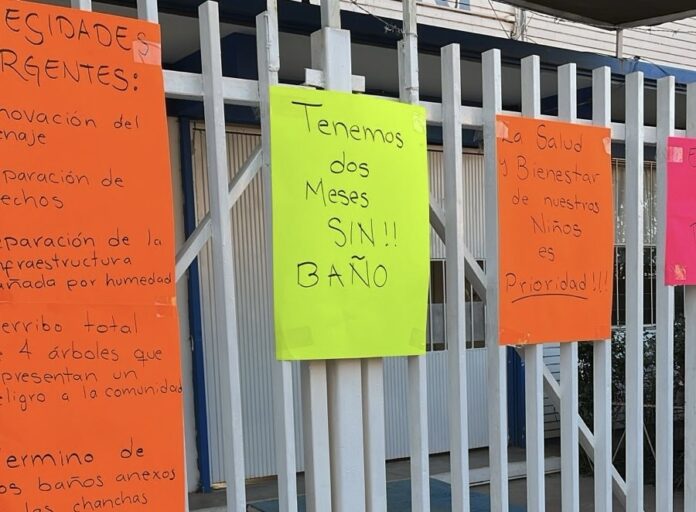 ESIDADES
RGENTES:
novación del
enaje
paración de
echos
eparación de la
nfraestructura
añada por humedad
erribo total
e 4 árboles que
presentan un
eligro a la comunidad
ermino de
os baños anexos
las chanchas
Tenemos
dos
Meses
SIN!!
BAÑO
La Salud
y Bienestar
de nuestros
Niños
es
Prioridad!!!